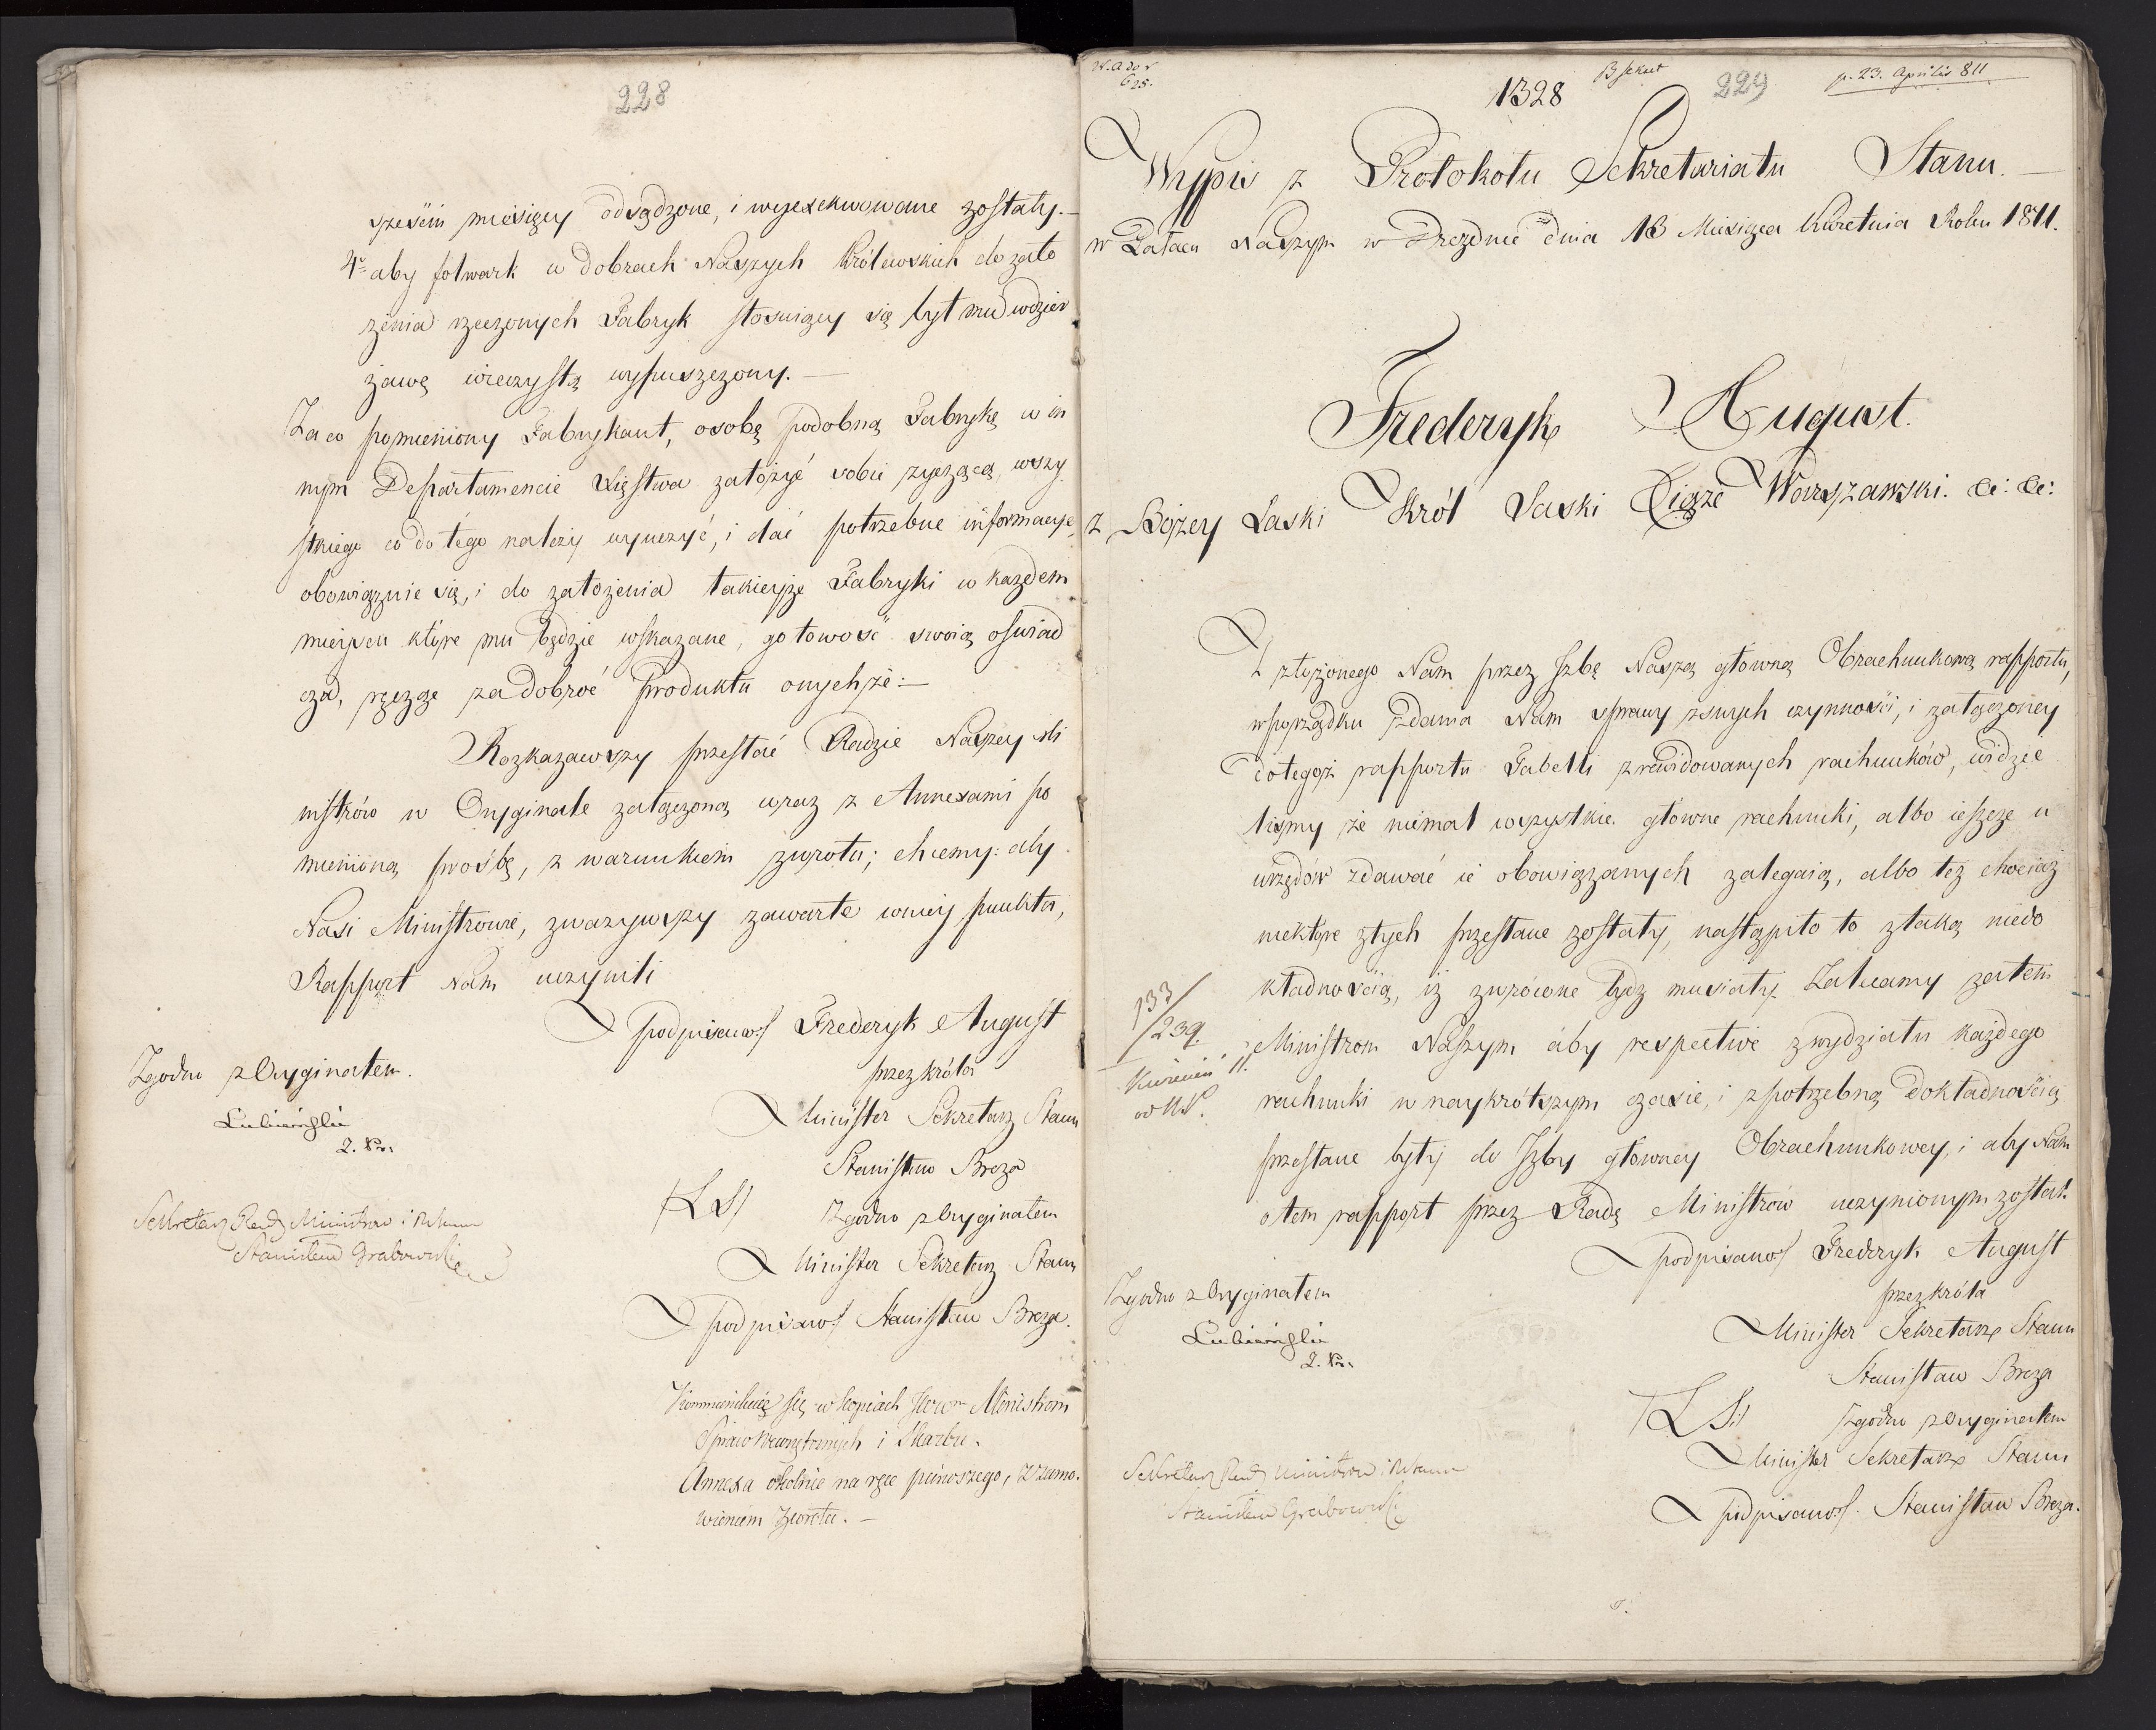 228
sześciu miesięcy odsądzone, i wyexekwowane zostały.—
4º aby folwark w dobrach Naszych Królewskich do zało
żenia rzeczonych Fabryk stosuiący się był mu w dzier
żawę wieczystą wypuszczony.—
Za co pomieniony Fabrykant, osobę podobną Fabrykę w in
nym Departamencie Xięstwa założyć sobie życzącą, wszy
stkiego co do tego należy wyuczyć, i dać potrzebne informacye,
obowiązuie się, i do założenia takieyże Fabryki w każdem
mieyscu które mu będzie wskazane, gotowość swoią oświad
cza, ręcząc za dobroć Produktu onychże:—
Rozkazawszy przesłać Radzie Naszey Mi
nistrów w Oryginale załączoną wraz z Annexami po
mienioną prośbę, z warunkiem zwrotu; chcemy: aby
Nasi Ministrowie, zważywszy zawarte w niey punkta,
Rapport Nam uczynili
podpisano/ Frederyk August
przez króla
Minister Sekretarz Stanu
Stanisław Breza
/L S/ Zgodno z Oryginałem
Minister Sekretarz Stanu
podpisano/ Stanisław Breza.
Zgodno z Oryginałem.
Lubieński
Sekretarz Rady Ministrów i
Stanisław Grabowski
Kommunikuie się w kopiach Ministrom
Spraw Wewnętrznych i Skarbu.
Annexa na ręce pierwszego, z zamo.
wieniem zwrotu.—
1328
229
p. 23. Aprilis 811
Wypis z Protokołu Sekretariatu Stanu.—
w Pałacu Naszym w Dreznie dnia 13 Miesiąca Kwietnia Roku 1811.
Frederyk August.
z Bożey Łaski Król Saski Xiąże Warszawski. &c: &c:
Z złożonego Nam przez Izbę Naszą główną Obrachunkową rapportu,
w porządku zdania Nam sprawy z swych czynności, i załączoney
do tegoż rapportu Tabelli zrewidowanych rachunków, widzie
liśmy że niemal wszystkie główne rachunki, albo ieszcze u
urzędów zdawać ie obowiązanych zalegaią, albo też chociaż
niektóre z tych przesłane zostały, nastąpiło to z taką niedo
kładnością, iż zwrócone bydz musiały. Zalecamy zatem
Ministrom Naszym aby respective z wydziału każdego
rachunki w naykrótszym czasie, i z potrzebną dokładnością
przesłane były do Izby główney Obrachunkowey, i aby Nam
o tem rapport przez Radę Ministrów uczynionym został.
133/239.
podpisano/ Frederyk August
przez króla
Minister Sekretarz Stanu
Stanisław Breza
/L S:/ Zgodno z Oryginałem
Minister Sekretarz Stanu
podpisano/. Stanisław Breza.
Zgodno z Oryginałem
Lubieński
Sekretarz Rady Ministrów i
Stanisław Grabowski